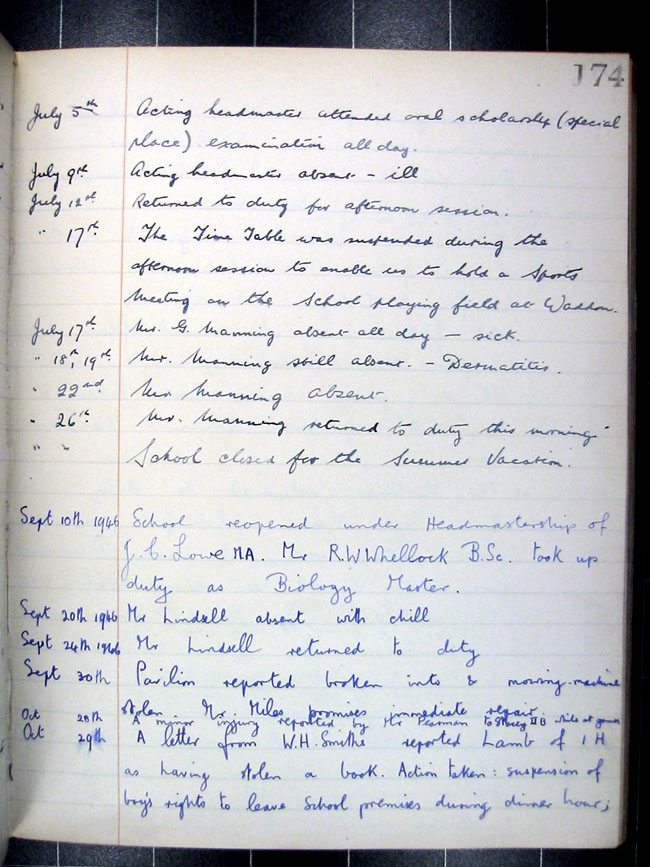 174
July 5th Acting headmaster attended oral scholarship (special
place) examination all day.
July 9th Acting headmaster absent - ill
July 12th Returned to duty for afternoon session.
" 17th The Time Table was suspended during the
afternoon session to enable us to hold a Sports
Meeting on the School playing field at Waddon.
July 17th Mr. G. Manning absent all day - sick.
" 18th, 19th Mr. Manning still absent. - Dermatitis.
" 22nd Mr Manning absent.
" 26th Mr. Manning returned to duty this morning
" " School closed for the Summer Vacation.
Sept 10th 1946 School reopened under Headmastership of
J. C. Lowe MA. Mr R.W Whellock B.Sc. took up
duty as Biology Master.
Sept 20th 1946 Mr Lindsell absent with chill
Sept 24th 1946 Mr Lindsell returned to duty
Sept 30th Pavilion reported broken into & mowing-machine
stolen Mr. Miles promises immediate repair.
Oct 28th A minor injury reported by Mr Pearman to IIB while at games
Oct 29th A letter from W.H. Smiths reported Lamb of 1 H
as having stolen a book. Action taken: suspension of
boy's rights to leave School premises during dinner hour;